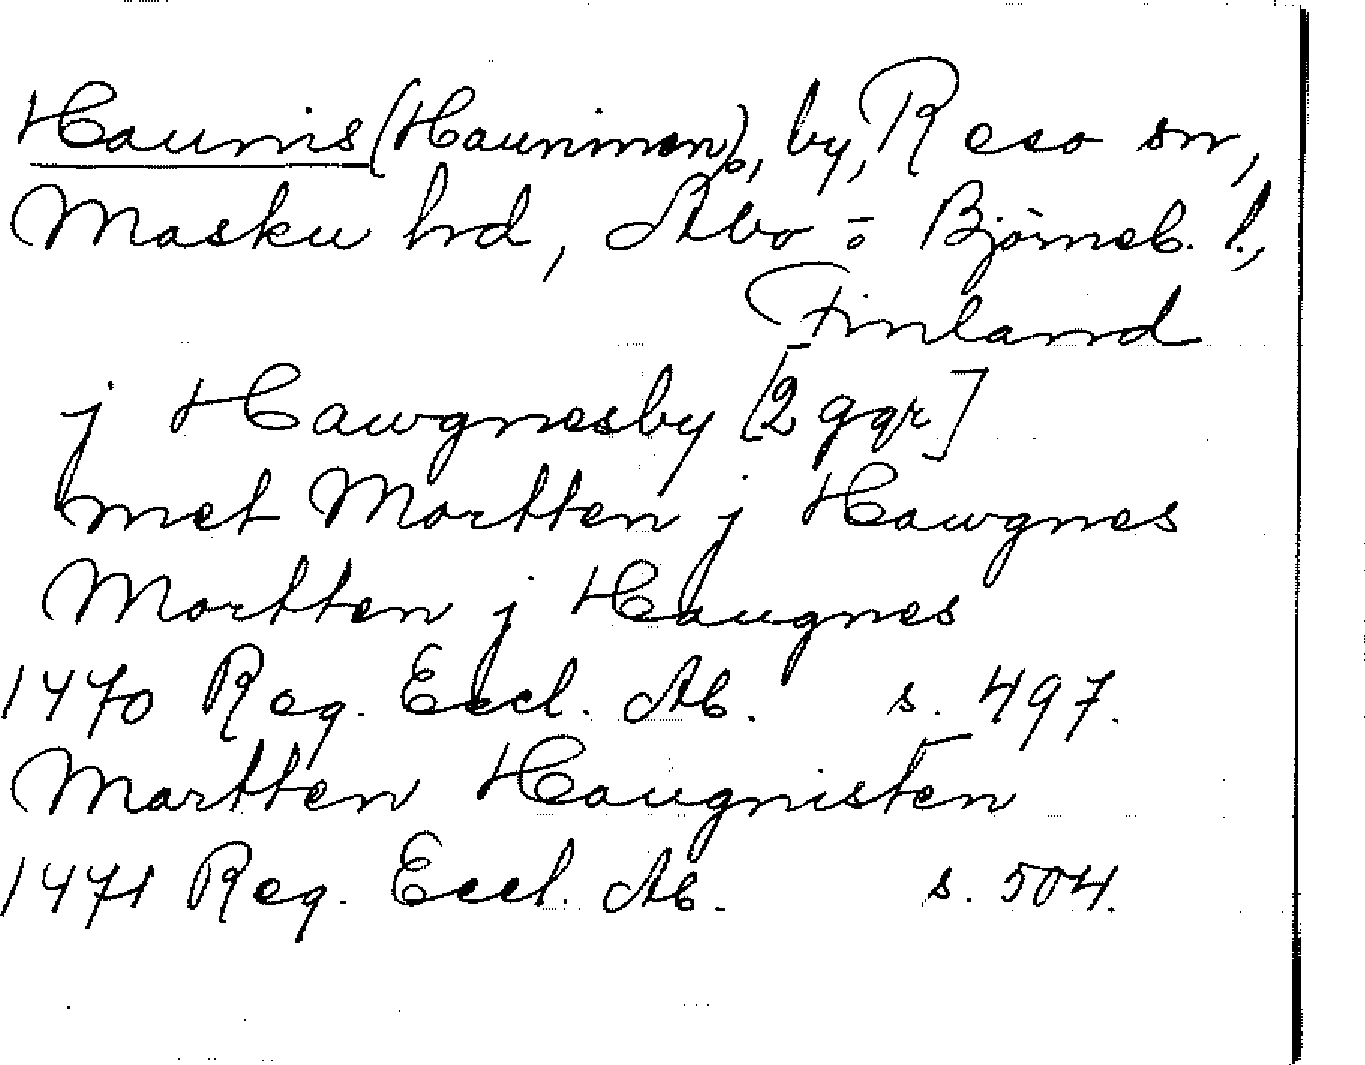 Haunis (Hauninen), by, Reso sn,
Masku hd, Åbo- o Björneb. l.,
Finland
j Hawgnesby [2 ggr]
met Martten j Hawgnes
Martten j Haugnes
1470 Reg. Eccl. Ab. s. 497.
Martten Haugnisten
1471 Reg. Eccl. Ab. s. 504.